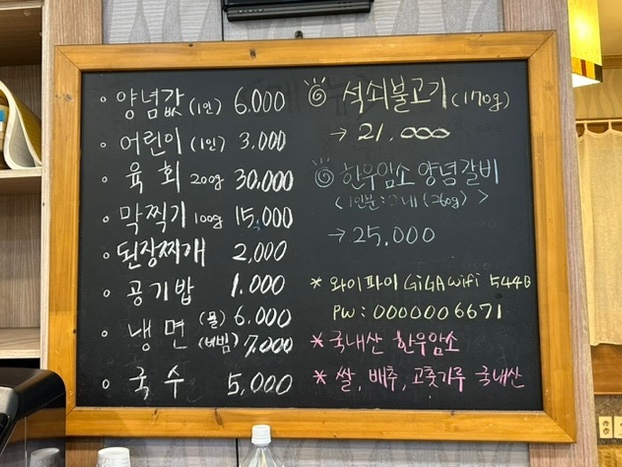 양념값 (1인) 6.000
어린이 (1인) 3,000
육회 200g 30,000
막찍기 100g 15,000
된장찌개 2,000
공기밥 1.000
냉면 (물) 6.000
(비빔) 7,000
국수 5,000
석쇠불고기 (170g)
→ 21.000
한우암소 양념갈비
<1인분: 2대 (260g)>
→ 25.000
* 와이파이 GiGA Wifi 544B
PW : 0000006671
* 국내산 한우암소
* 쌀, 배추, 고춧가루 국내산